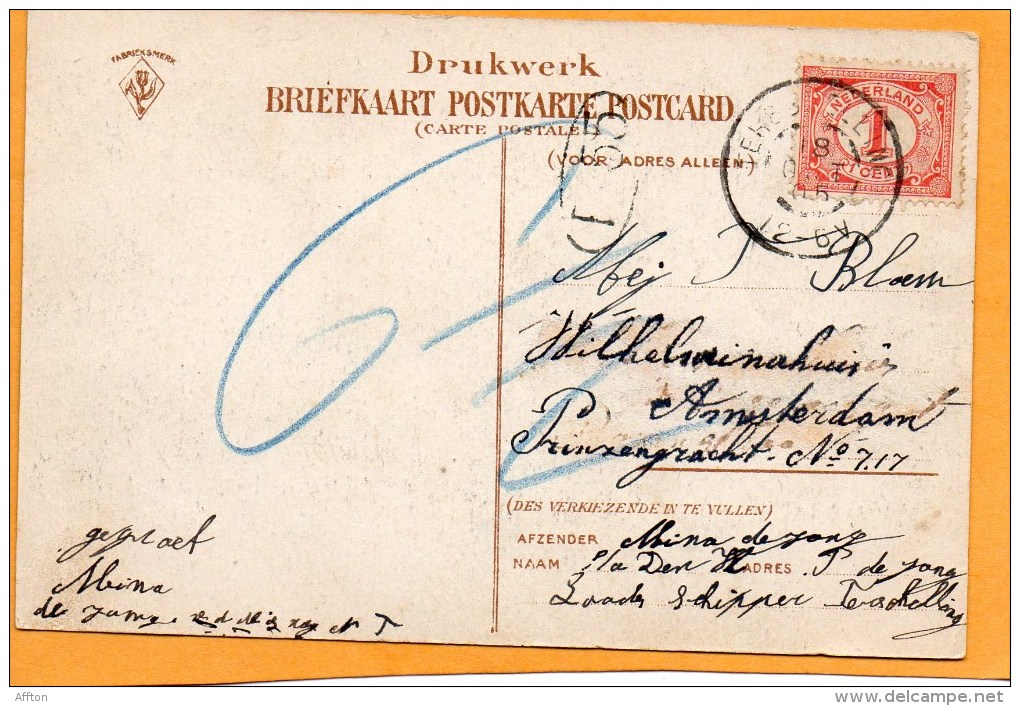 FABRIEKSMERK
Drukwerk
BRIEFKAART POSTKARTE POSTCARD
(CARTE POSTALE)
(VOOR ADRES ALLEEN)
NEDERLAND
1
1 CENT
18
12-6N
55
Mej P Bloem
Wilhelminahuis
P. Amsterdam
Prinzengracht No 717
(DES VERKIEZENDE IN TE VULLEN)
AFZENDER Mina de Jong
NAAM p/a Den H ADRES P de Jong
Loods schipper Terschelling
gegroet
Mina
de Jong
Affton
delcampe.net